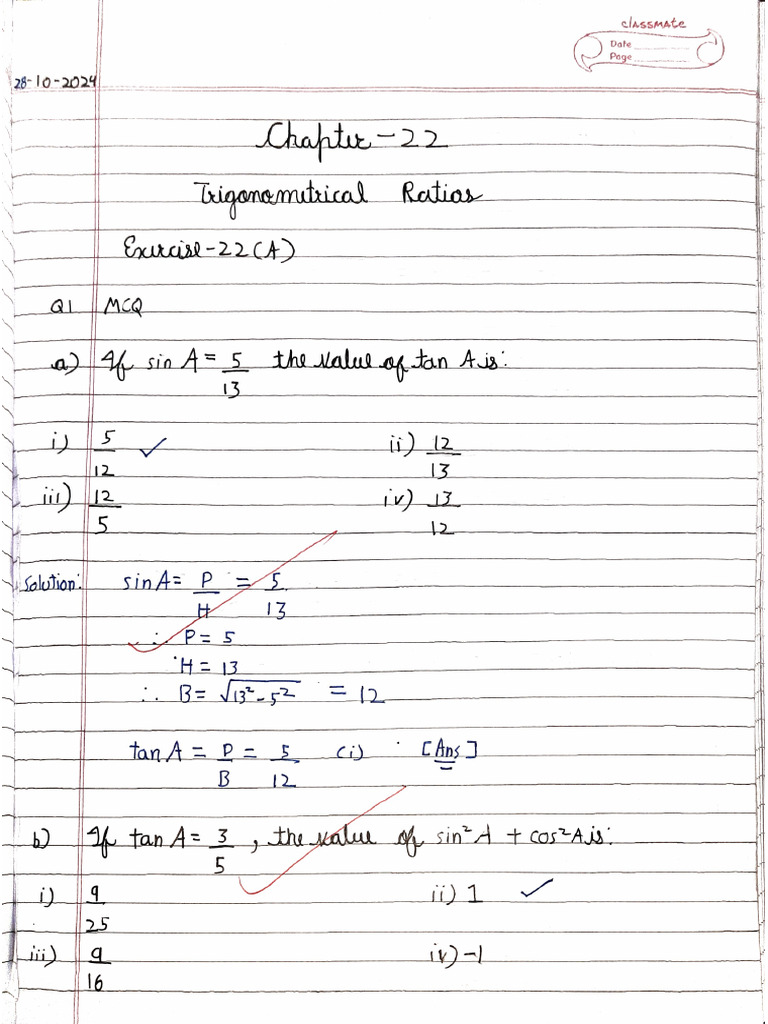 classmate
Date
Page
28-10-2024
Chapter-22
Trigonometrical Ratios
Exercise-22(A)
Q1 MCQ
a) If sin A = 5/13 the value of tan A is:
i) 5/12 ✓ ii) 12/13
iii) 12/5 iv) 13/12
Solution: sin A = P/H = 5/13
∴ P = 5
H = 13
∴ B = √13² - 5² = 12
tan A = P/B = 5/12 (i) [Ans]
b) If tan A = 3/5, the value of sin² A + cos² A is:
i) 9/25 ii) 1 ✓
iii) 9/16 iv) -1